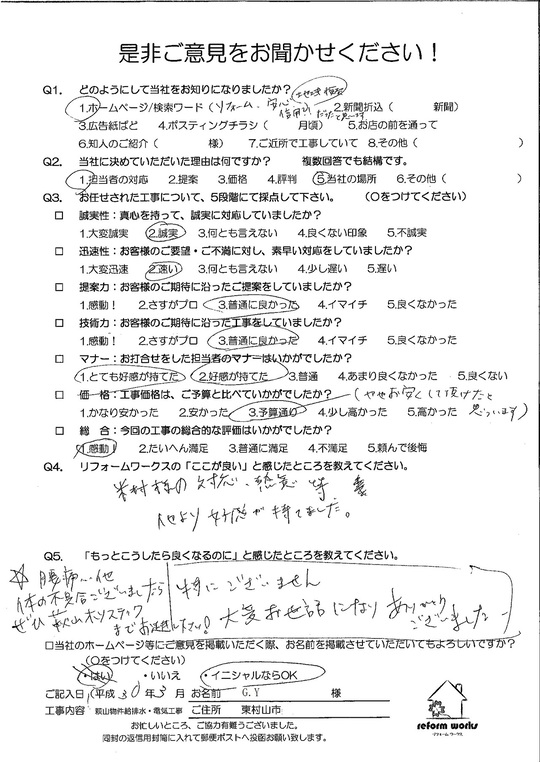 是非ご意見をお聞かせください！
Q1. どのようにして当社をお知りになりましたか？
1.ホームページ/検索ワード（リフォーム・安心 信用 2.新聞折込（ 新聞）
3.広告紙ぱど 4.ポスティングチラシ（ 月頃） 5.お店の前を通って
6.知人のご紹介（ 様） 7.ご近所で工事していて 8.その他（ ）
Q2. 当社に決めていただいた理由は何ですか？ 複数回答でも結構です。
1.担当者の対応 2.提案 3.価格 4.評判 5.当社の場所 6.その他（ ）
Q3. お任せされた工事について、5段階にて採点して下さい。 （〇をつけてください）
□ 誠実性：真心を持って、誠実に対応していましたか？
1.大変誠実 2.誠実 3.何とも言えない 4.良くない印象 5.不誠実
□ 迅速性：お客様のご要望・ご不満に対し、素早い対応をしていましたか？
1.大変迅速 2.速い 3.何とも言えない 4.少し遅い 5.遅い
□ 提案力：お客様のご期待に沿ったご提案をしていましたか？
1.感動！ 2.さすがプロ 3.普通に良かった 4.イマイチ 5.良くなかった
□ 技術力：お客様のご期待に沿った工事をしていましたか？
1.感動！ 2.さすがプロ 3.普通に良かった 4.イマイチ 5.良くなかった
□ マナー：お打合せをした担当者のマナーはいかがでしたか？
1.とても好感が持てた 2.好感が持てた 3.普通 4.あまり良くなかった 5.良くない
□ 価 格：工事価格は、ご予算と比べていかがでしたか？（ややお安くして頂けたと
1.かなり安かった 2.安かった 3.予算通り 4.少し高かった 5.高かった 思っています）
□ 総 合：今回の工事の総合的な評価はいかがでしたか？
1.感動！ 2.たいへん満足 3.普通に満足 4.不満足 5.頼んで後悔
Q4. リフォームワークスの「ここが良い」と感じたところを教えてください。
米村様の対応、 等
他より好感が持てました。
Q5. 「もっとこうしたら良くなるのに」と感じたところを教えてください。
☆ 腰痛…他
体の不具合ございましたら
ぜひ 萩山ホリスティック
までお越し下さい!
特にございません
大変お世話になりありがとうございました
□当社のホームページ等にご意見を掲載いただく際、お名前を掲載させていただいてもよろしいですか？
（〇をつけてください）
・はい ・いいえ ・イニシャルならOK
ご記入日 平成30年3月 お名前 G.Y 様
工事内容 萩山物件給排水・電気工事 ご住所 東村山市
お忙しいところ、ご協力有難うございました。
同封の返信用封筒に入れて郵便ポストへ投函お願い致します。
reform works
リフォームワークス